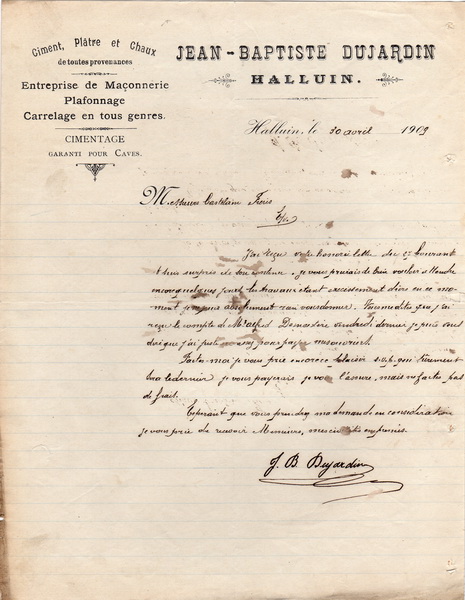 Ciment, Plâtre et Chaux
de toutes provenances
Entreprise de Maçonnerie
Plafonnage
Carrelage en tous genres.
CIMENTAGE
GARANTI POUR CAVES.
JEAN-BAPTISTE DUJARDIN
HALLUIN.
Halluin, le 30 avril 1909
Messieurs Castelain Frères
J'ai reçu votre honorée lettre du courant
et suis surpris de son contenu, je vous priais de bien vouloir attendre
encore quelques jours les travaux étant excessivement dures en ce mo-
ment je ne puis absolument rien vous donner. Vous me dites que j'ai
reçu le compte de Mr Alfred vendredi dernier je puis vous
dire que j'ai juste reçu pour payer mes ouvriers.
Faites-moi je vous prie encore ce plaisir s.v.p.
je vous payerais je vous l'assure, mais ne faites pas
de frais.
Espérant que vous prendrez ma demande en considération
je vous prie de recevoir Messieurs, mes civilités empressées.
J. B. Dujardin